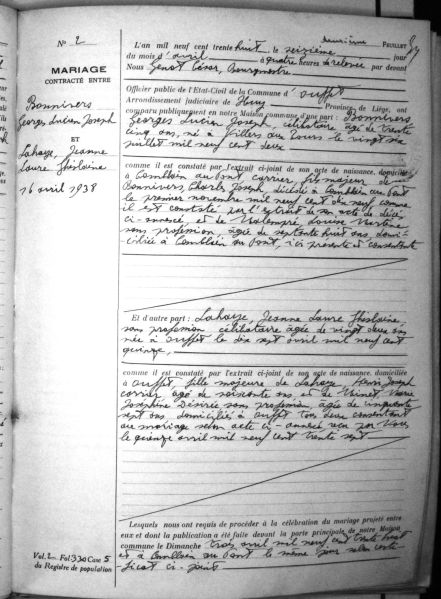 N° 2
MARIAGE
CONTRACTÉ ENTRE
Bonnivers
Georges Lucien Joseph
ET
Lahaye, Jeanne
Laure Ghislaine
16 avril 1938
deuxième FEUILLET
L'an mil neuf cent trente huit, le seizième jour
du mois d'avril à quatre heures de relevée par devant
Nous César, Bourgmestre
Officier public de l'État-Civil de la Commune d'Ouffet
Arrondissement judiciaire de Huy, Province de Liége, ont
comparu publiquement en notre Maison commune d'une part : Bonnivers
Georges Lucien Joseph, célibataire âgé de trente
cinq ans, né à Villers aux Tours le vingt six
juillet mil neuf cent deux
comme il est constaté par l'extrait ci-joint de son acte de naissance, domicilié
à Comblain au Pont carrier, fils majeur de
Bonnivers, Charles Joseph, décédé à Comblain au Pont
le premier novembre mil neuf cent dix neuf comme
il est constaté par l'extrait de son acte de décès
ci-annexé, et de Malempré, Louise
sans profession, âgée de septante huit ans, domi-
ciliée à Comblain au Pont, ici présente et consentante
Et d'autre part : Lahaye, Jeanne Laure Ghislaine,
sans profession célibataire âgée de vingt deux ans
née à Ouffet le dix sept avril mil neuf cent
quinze,
comme il est constaté par l'extrait ci-joint de son acte de naissance, domiciliée
à Ouffet, fille majeure de Lahaye, Henri Joseph
carrier âgé de soixante ans, et de Marie
Joséphine Désirée sans profession âgée de cinquante
sept ans domiciliés à Ouffet tous deux consentant
au mariage selon acte ci-annexé reçu par Nous
le quinze avril mil neuf cent trente sept
Lesquels nous ont requis de procéder à la célébration du mariage projeté entre
eux et dont la publication a été faite devant la porte principale de notre Maison
commune le Dimanche trois avril mil neuf cent trente huit
et à Comblain au Pont le même jour selon certi-
ficat ci-joint
Vol. 2 Fol 330 Case 5
du Registre de population